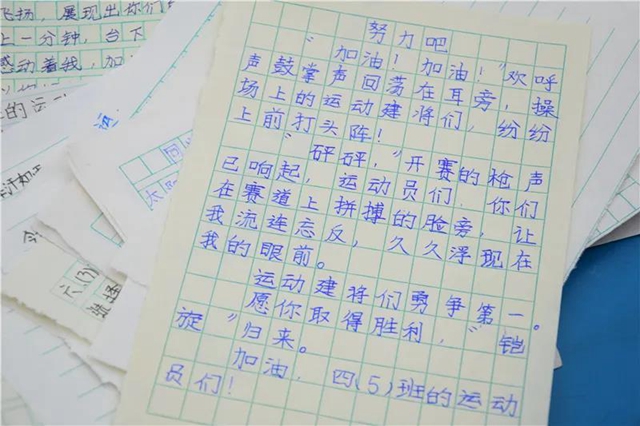 飞扬，展现出你们
上一分钟，台下
感动着我，加
的运动
六(3)
努力吧
"加油！加油！"欢呼
声鼓掌声回荡在耳旁，操
场上的运动建将们，纷纷
上前打头阵！
"砰砰，"开赛的枪声
已响起，运动员们，你们
在赛道上拼搏的脸旁，让
我流连忘反，久久浮现在
我的眼前。
运动建将们勇争第一。
愿你取得胜利，"铠
旋"归来。
加油，四(5)班的运动
员们！